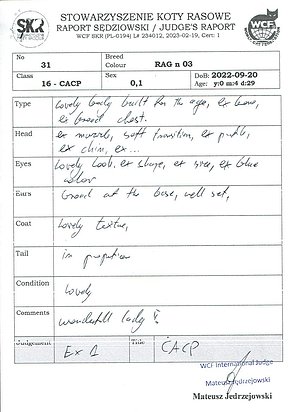 STOWARZYSZENIE KOTY RASOWE
RAPORT SĘDZIOWSKI / JUDGE'S REPORT
WCF SKR (PL-0194) L# 234012, 2023-02-19, Cert: 1
SKR
WCF
No 31
Breed Colour RAG n 03
Class 16 - CACP
Sex 0,1
DoB: 2022-09-20
Age: y:0 m:4 d:29
Type Lovely body built for the age, ex bone,
broad chest.
Head ex muzzle, soft transition, ex profile,
ex chin, ex ...
Eyes Lovely look, ex shape, ex size, ex blue
color
Ears broad at the base, well set,
Coat Lovely texture,
Tail in proportion
Condition Lovely
Comments wonderfull lady!
Judgement Ex 1
Title CACP
WCF International Judge
Mateusz Jędrzejowski
Mateusz Jędrzejowski